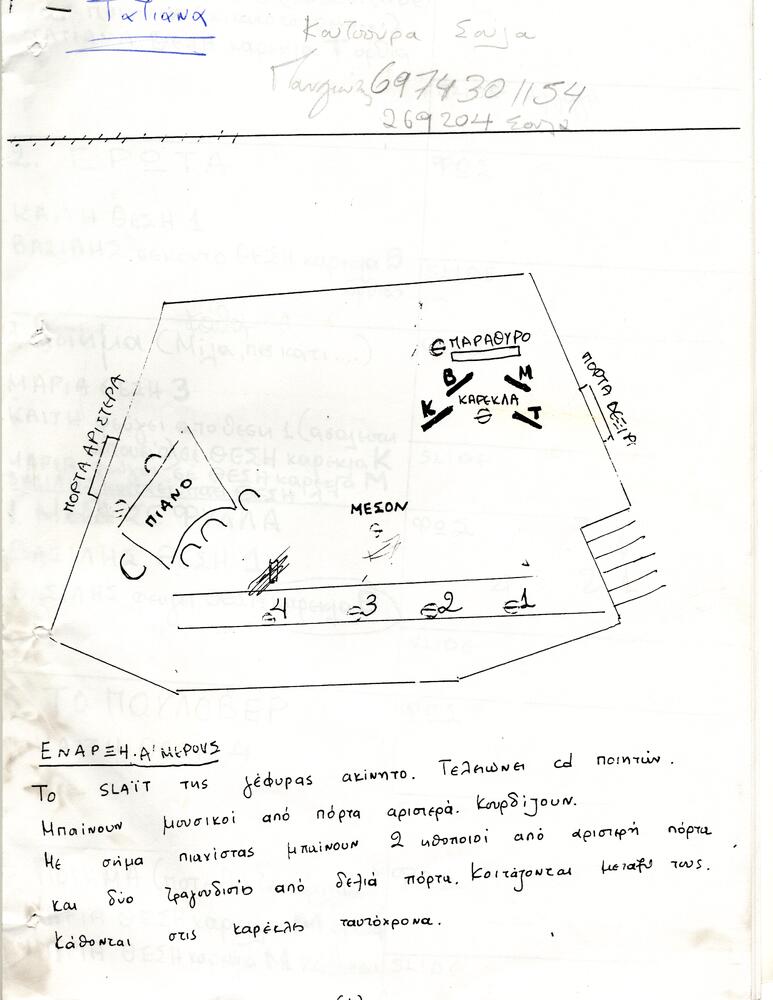 1 — ΤΑΤΙΑΝΑ
Κουτσούρα Σούλα
6974301154
269204 Σούλα
ΠΑΡΑΘΥΡΟ
Β Μ
Κ ΚΑΡΕΚΛΑ Τ
ΠΟΡΤΑ ΔΕΞΙΑ
ΠΟΡΤΑ ΑΡΙΣΤΕΡΑ
ΠΙΑΝΟ
ΜΕΣΟΝ
4 3 2 1
ΕΝΑΡΞΗ Α' ΜΕΡΟΥΣ
Το SLAÏT της γέφυρας ακίνητο. Τελειώνει cd ποιητών.
Μπαίνουν μουσικοί από πόρτα αριστερά. Κουρδίζουν.
Με σήμα πιανίστας μπαίνουν 2 ηθοποιοί από αριστερή πόρτα
και δύο τραγουδιστές από δεξιά πόρτα. Κοιτάζονται μεταξύ τους.
Κάθονται στις καρέκλες ταυτόχρονα.